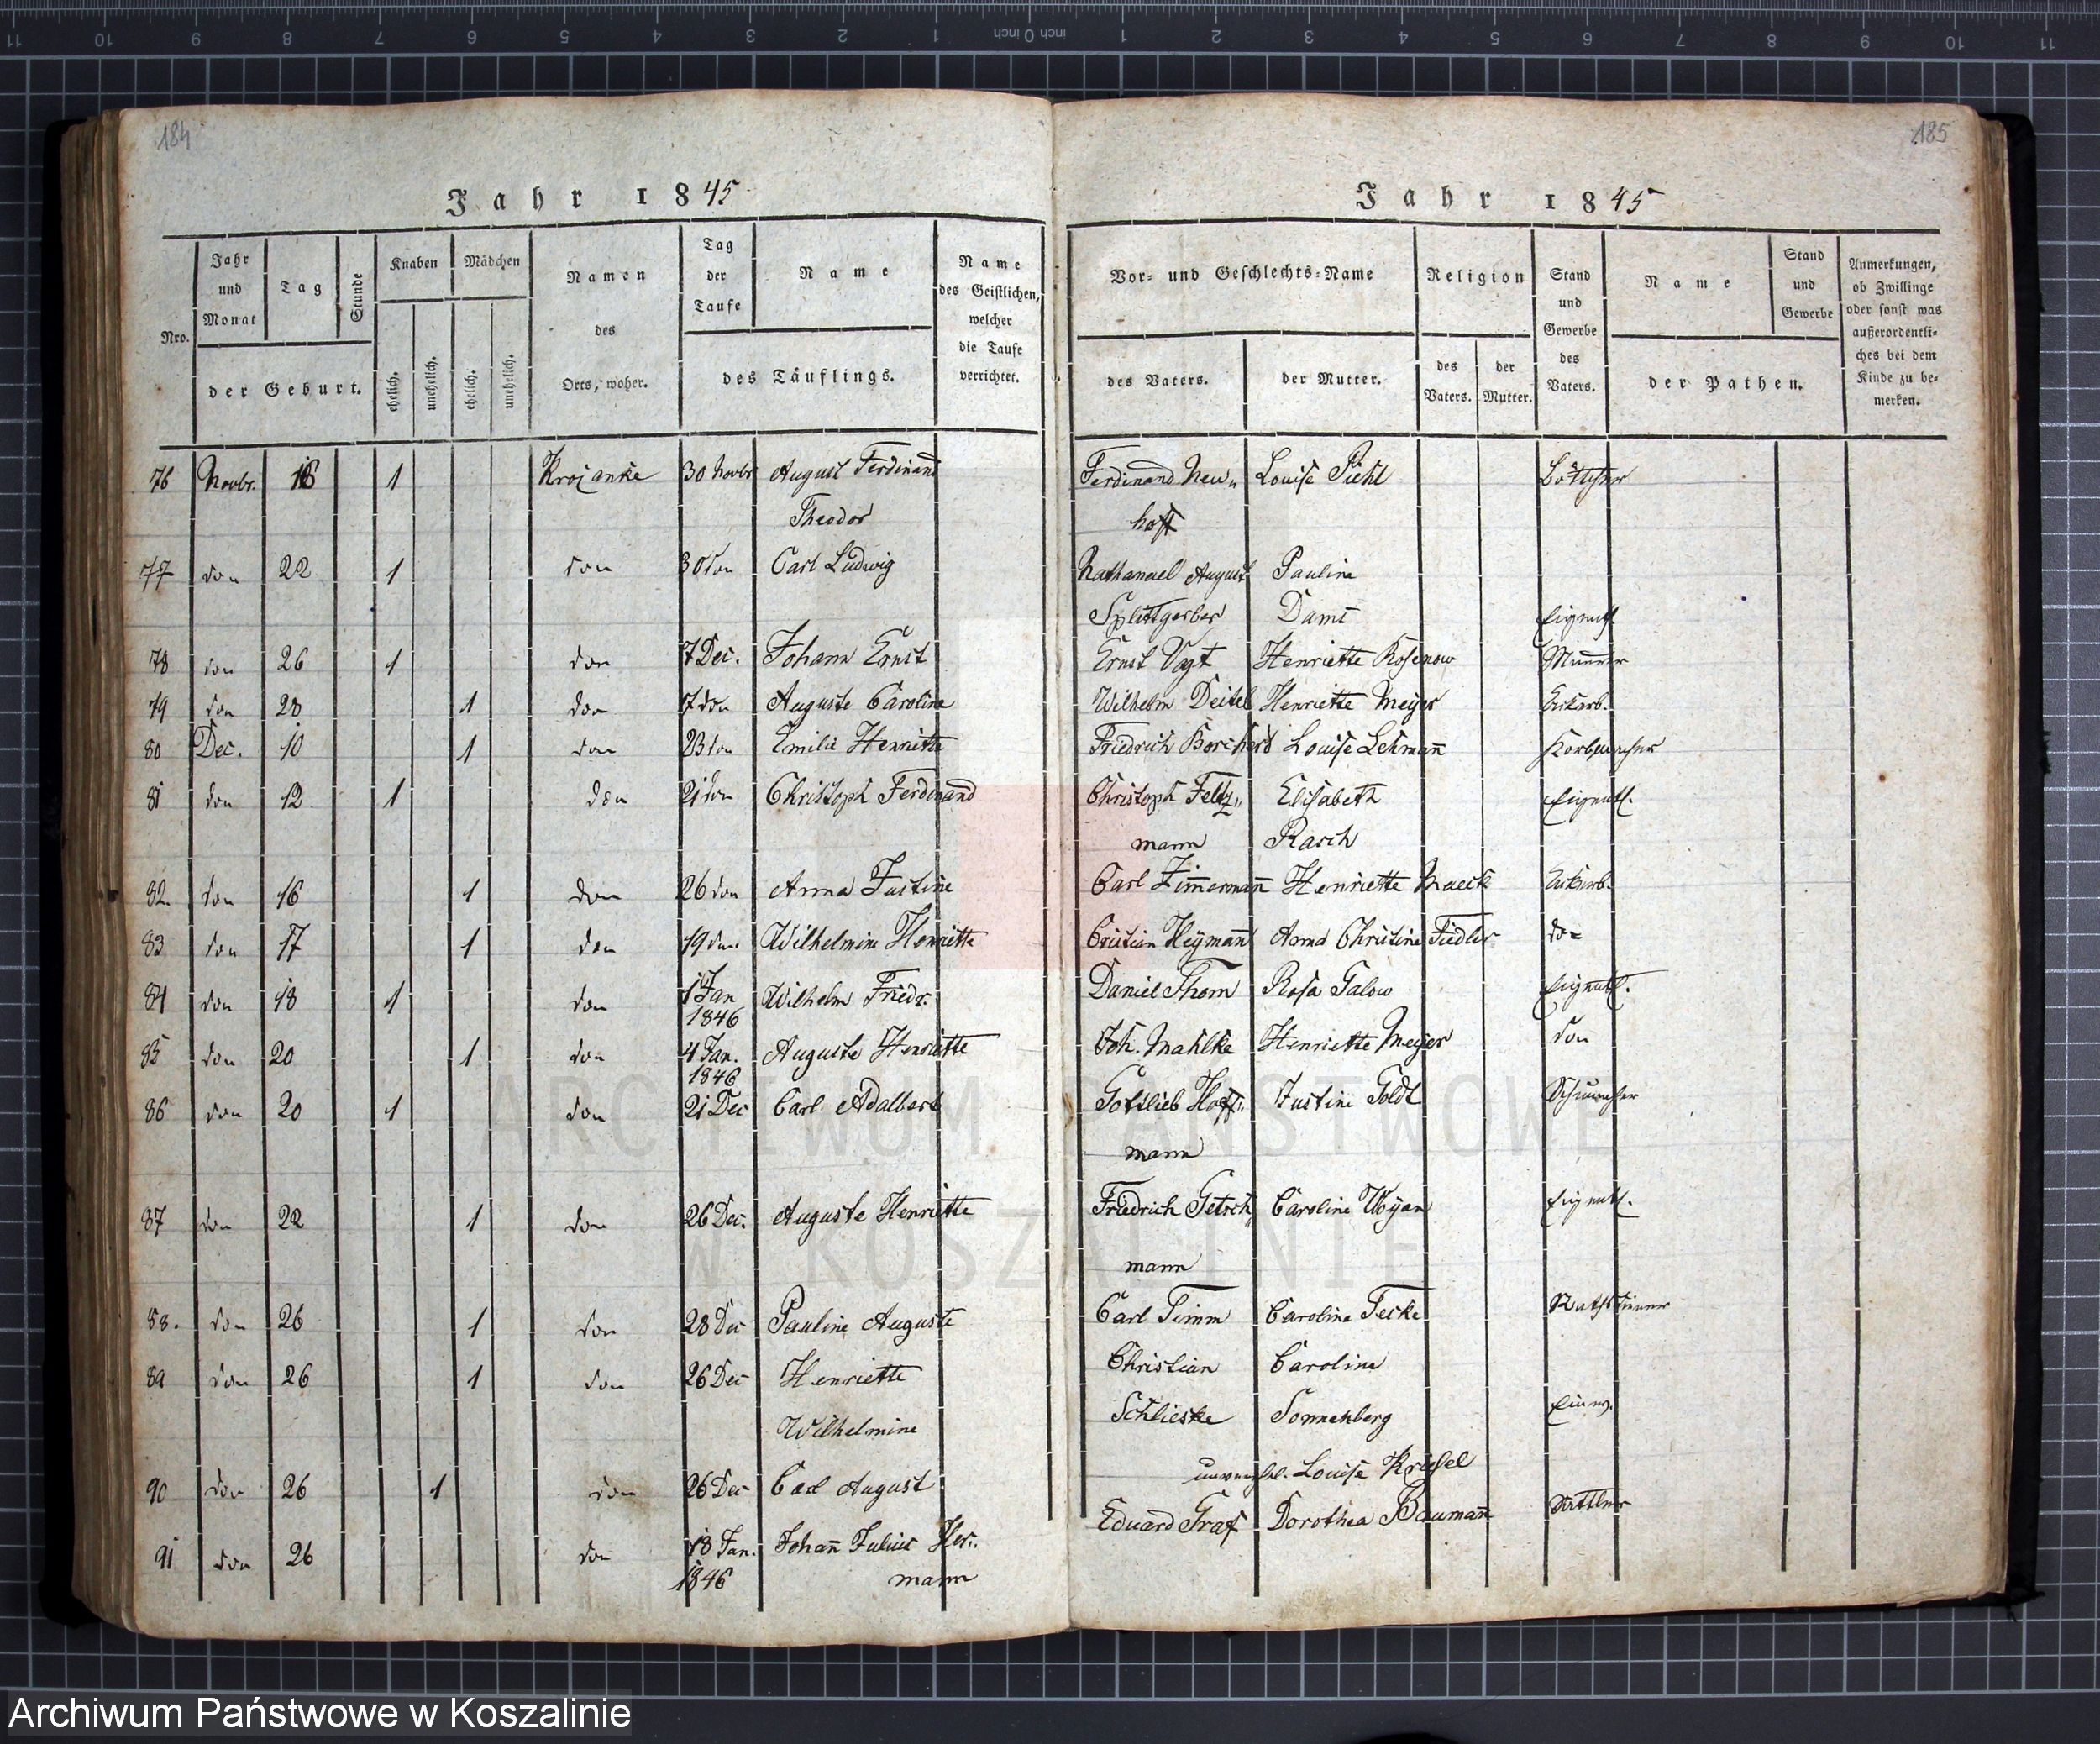 11 10 9 8 7 6 5 4 3 2 1 inch 0 inch 1 2 3 4 5 6 7 8 9 10 11
184
Jahr 1845
Nro.
Jahr und Monat
Tag
Stunde
der Geburt.
Knaben
ehelich.
unehelich.
Mädchen
ehelich.
unehelich.
Namen des Orts, woher.
Tag der Taufe
Name
des Täuflings.
Name des Geistlichen, welcher die Taufe verrichtet.
76 Novbr. 1 Krojanke 30 Novbr August Ferdinand
Theodor
77 don 22 1 don 30 don Carl Ludwig
78 don 26 1 don 7 Dec. Johann Ernst
79 don 28 1 don 7 don Auguste Caroline
80 Dec. 10 1 don 23 don Emilie Henriette
81 don 12 1 don 21 don Christoph Ferdinand
82. don 16 1 don 26 don Anna Justine
83 don 17 1 don 19 don Wilhelmine Henriette
84 don 18 1 don 1 Jan Wilhelm Friedr.
1846
85 don 20 1 don 4 Jan. Auguste Henriette
1846
86 don 20 1 don 21 Dec Carl Adalbert
87 don 22 1 don 26 Dec. Auguste Henriette
88. don 26 1 don 28 Dec Pauline Auguste
89 don 26 1 don 26 Dec Henriette
Wilhelmine
90 don 26 1 don 26 Dec Carl August
91 don 26 don 18 Jan. Johan̄ Julius Her..
1846 mann
185
Jahr 1845
Vor- und Geschlechts-Name
des Vaters.
der Mutter.
Religion
des Vaters.
der Mutter.
Stand und Gewerbe des Vaters.
Name
Stand und Gewerbe
der Pathen.
Anmerkungen,
ob Zwillinge
oder sonst was
außerordentli-
ches bei dem
Kinde zu be-
merken.
Ferdinand Neu„ Louise Piehl Böttcher
hoff
Nathanael August Pauline
Splittgerber Dame Eigenth
Ernst Vogt Henriette Rosenow Maurer
Wilhelm Deitel Henriette Meyer
Friedrich Borchert Louise Lehman̄ Korbmacher
Christoph Feltz„ Elisabeth Eigenth.
mann Rasch
Carl Zim̄erman̄ Henriette Maeck
Cristian Heyman̄ Anna Christine Fiedler do=
Daniel Thom Rosa Galow Eigenth.
Joh. Mahlke Henriette Meyer don
Gottlieb Hoff„ Justine Goldt Schumacher
mann
Friedrich Getsch„ Caroline Eigenth.
mann
Carl Timm Caroline Tecke Rathsdiener
Christian Caroline
Schlieske Sonnenberg Einw.
unverehl. Louise Kriesel
Eduard Graf Dorothea Bauman̄ Sattler
ARCHIWUM PAŃSTWOWE
W KOSZALINIE
Archiwum Państwowe w Koszalinie